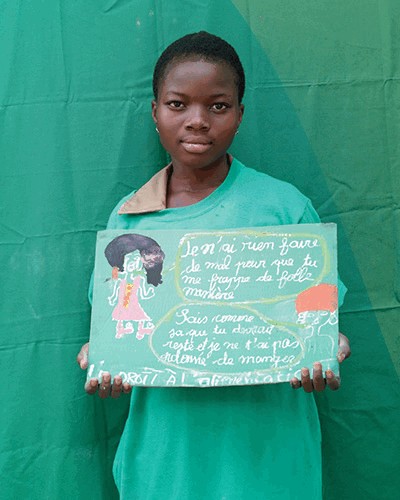 Je n'ai rien faire
de mal pour que tu
me frappe de folle
manière
Sais comme
sa que tu devrait
resté et je ne t'ai pas
donné de manger
LE DROIT A L'